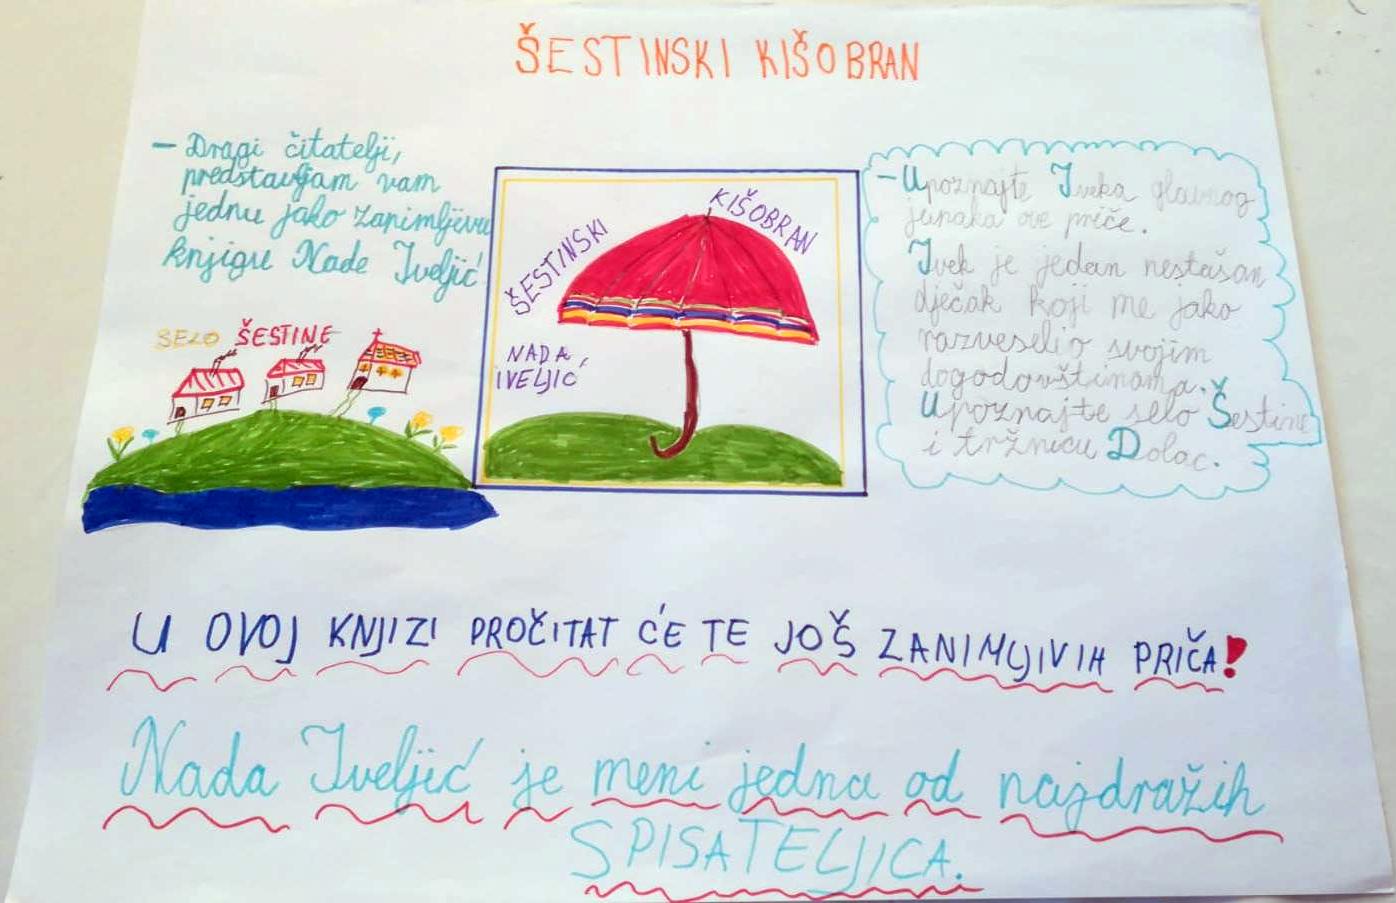 ŠESTINSKI KIŠOBRAN
- Dragi čitatelji,
predstavljam vam
jednu jako zanimljivu
knjigu Nade Iveljić!
SELO ŠESTINE
ŠESTINSKI KIŠOBRAN
NADA
IVELJIĆ
- Upoznajte Iveka glavnog
junaka ove priče.
Ivek je jedan nestašan
dječak koji me jako
razveselio svojim
dogodovštinama.
Upoznajte selo Šestine
i tržnicu Dolac.
U OVOJ KNJIZI PROČITAT ĆE TE JOŠ ZANIMLJIVIH PRIČA!
Nada Iveljić je meni jedna od najdražih
SPISATELJICA.